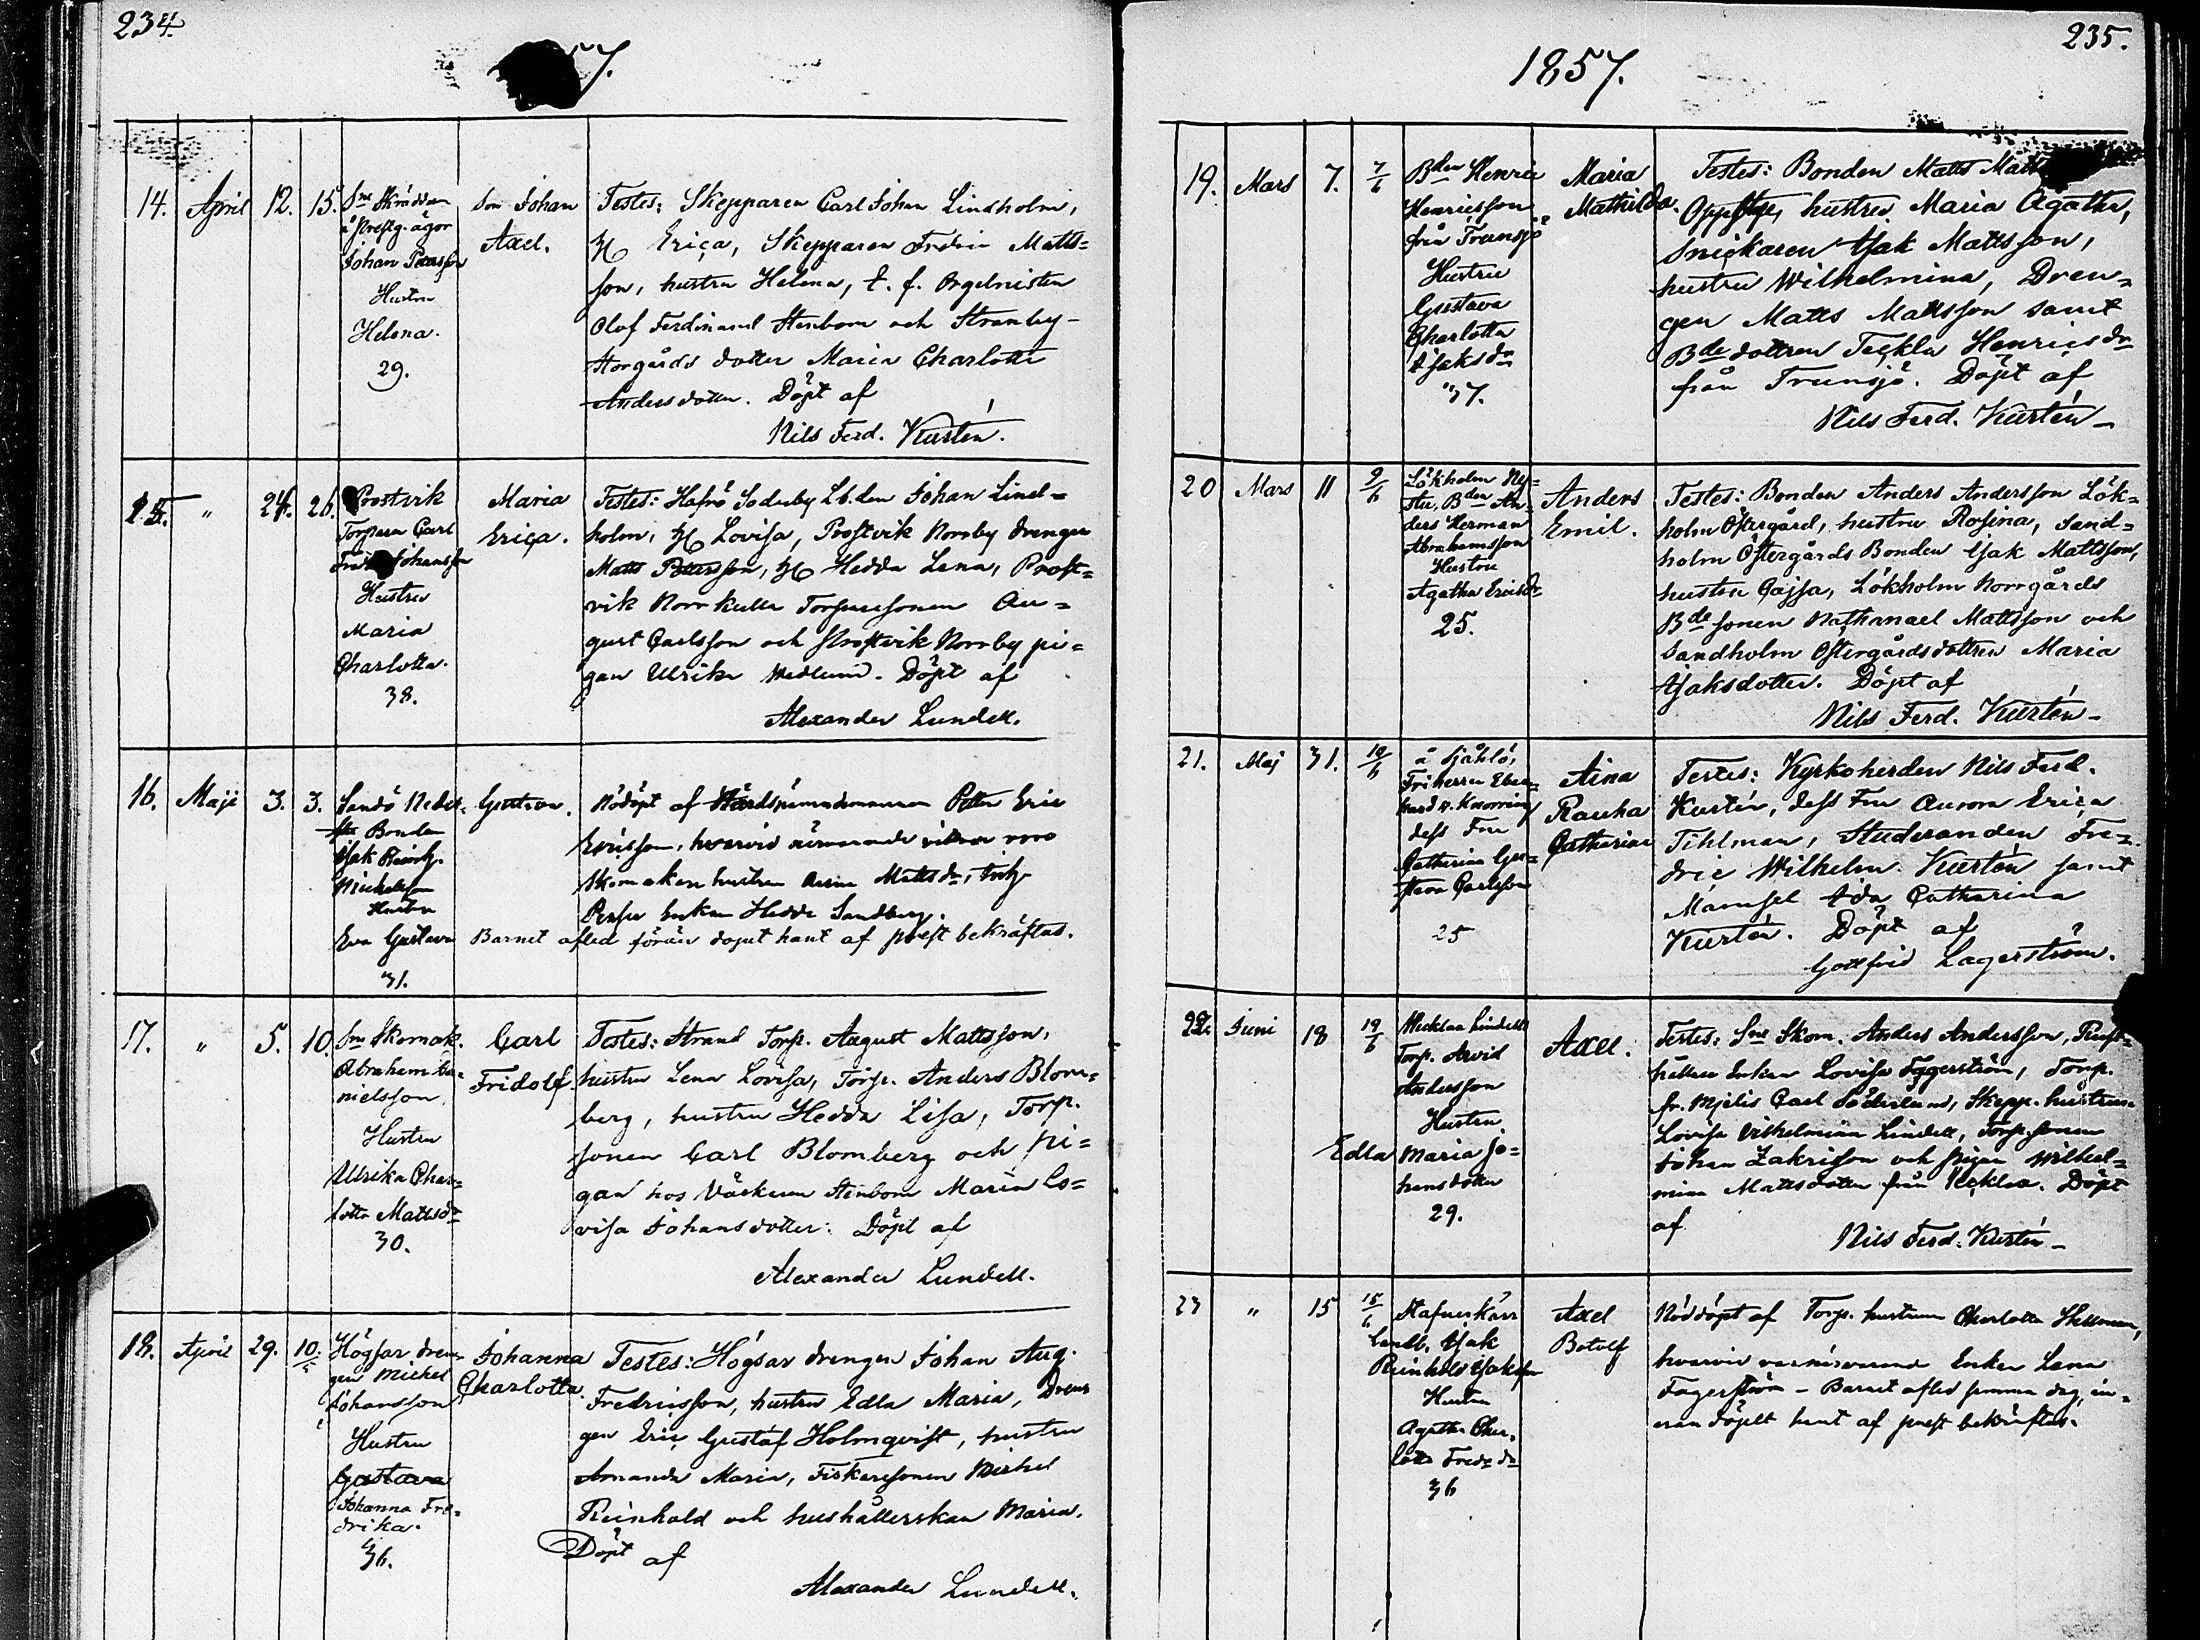 234.
7.
14. April 12. 15. Sne Skräddaren
å Prestg. ägor
Johan Petersson
Hustru
Helena.
29.
Son Johan
Axel.
Testes: Skepparen Carl Johan Lindholm,
H Erica, Skepparen Fredric Matts=
son, hustru Helena, t. f. Orgelnisten
Olof Ferdinand Stenbom och Strandby-
Storgårds dotter Maria Charlotta
Andersdotter. Döpt af
Nils Ferd. Kurtén.
15. " 24. 26. Prostvik
Torparn Carl
Johansson
Hustru
Maria
Charlotta.
38.
Maria
Erica.
Testes: Hafrö Söderby Lb. den Johan Lind=
holm, H Lovisa, Prostvik Norrby drengen
Matts Petersson, H Hedda Lena, Prost=
vik Norrkulla Torparesonen Au=
gust Carlsson och Prostvik Norrby pi=
gan Ulrika Hedlund. Döpt af
Alexander Lundell.
16. Maji 3. 3. Sandö Neder-
Bonden
Isak Reinh.
Michelsson
Hustru
Eva Gustava
31.
Gustava.
Nödöpt af Petter Eric
Ericsson, hvarvid närvarande voro
Skomakare hustrun Anna Mattsdr,
Enkan Hedda Sandberg.
Barnet afled förän dopet hant af prest bekräftas.
17. " 5. 10. Sne Skomak.
Abraham Da=
nielsson
Hustru
Ulrika Char=
lotta Mattsdr
30.
Carl
Fridolf.
Testes: Strand Torp. August Mattsson,
hustru Lena Lovisa, Torp. Anders Blom=
berg, hustru Hedda Lisa, Torp.
sonen Carl Blomberg och pi=
gan hos Stenbom Maria Lo=
visa Johansdotter. Döpt af
Alexander Lundell.
18. April 29. 10. Högsar dren=
gen Michel
Johansson
Hustru
Gustava
Johanna Fre=
drika.
36.
Johanna
Charlotta.
Testes: Högsar drengen Johan Aug.
Fredricsson, hustru Edla Maria, Dren=
gen Eric Gustaf Holmqvist, hustru
Amanda Maria, Fiskaresonen Michel
Reinhold och hushållerskan Maria.
Döpt af
Alexander Lundell.
235.
1857.
19. Mars 7. 7/6 Bden Henric
Henricsson
från Trunsjö
Hustru
Gustava
Charlotta
Isaksdr
37.
Maria
Mathilda.
Testes: Bonden Matts
hustru Maria Agatha,
Snickaren Isak Mattsson,
hustru Wilhelmina, Dren=
gen Matts Mattsson samt
Bde dottren Teckla Henricsdr
från Trunsjö. Döpt af
Nils Ferd. Kurtén
20 Mars 11 9/6 Lökholm Ny=
Bden An=
ders Herman
Abrahamsson
Hustru
Agatha Ericsdr
25.
Anders
Emil.
Testes: Bonden Anders Andersson Lök=
holm Östergård, hustru Rosina, Sand=
holm Östergårds Bonden Isak Mattsson,
hustru Cajsa, Lökholm Norrgårds
Bde sonen Nathanael Mattsson och
Sandholm Östergårdsdottren Maria
Isaksdotter. Döpt af
Nils Ferd. Kurtén
21. Maj 31. 10/6 å Själö,
Friherrn Eber=
hard v. Knorring
dess Fru
Catharina Gus=
tava Carlsson
25
Aina
Rauha
Catharina
Testes: Kyrkoherden Nils Ferd.
Kurtén, dess Fru Aurora Erica
Tihlman, Studeranden Fre=
dric Wilhelm Kurtén samt
Mamsel Ida Catharina
Kurtén. Döpt af
Gottfrid Lagerström.
22. Juni 18 19/6 Lindell
Torp. Arvid
Andersson
Hustru
Edla Maria Jo=
hansdotter
29.
Axel.
Testes: Sne Skom. Anders Andersson, Rust=
hållare Enkan Lovisa Fagerström, Torp.
fr. Mjelis Carl Söderlund, Skepp. hustrun
Lovisa Vilhelmina Lindell, Torp. sonen
Johan Zakrisson och pigan Wilhel=
mina Mattsdotter från Döpt
af
Nils Ferd. Kurtén
23 " 15 15/6 Stafverkärr
Landb. Isak
Reinhold Isaksson
Hustru
Agatha Char=
lotta Fredr.dr
36
Axel
Botolf
Nöddöpt af Torp. hustrun Charlotta Hellman,
hvarvid var närvarande Enkan Lena
Fagerström - Barnet afled samma dag, in=
nan döpelt hant af prest bekräftas.